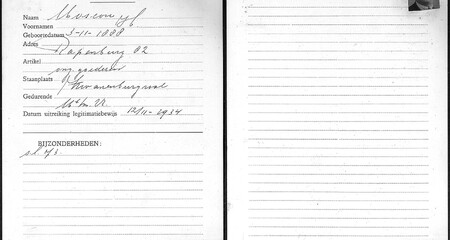 Naam Moscou
Voornamen
Geboortedatum 3-11-1888
Adres Rapenburg 82
Artikel ong. goederen
Staanplaats Zwanenburgwal
Gedurende
Datum uitreiking legitimatiebewijs 12/11-1934
BIJZONDERHEDEN: